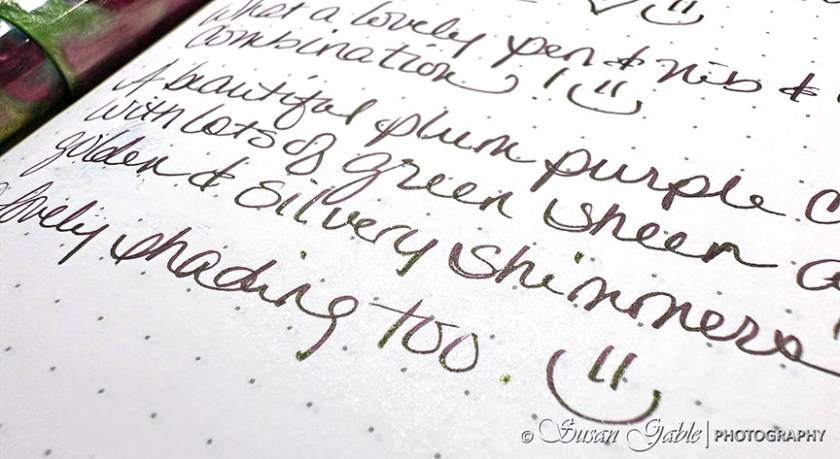 What a lovely pen & nib &
combination! 
A beautiful plum purple
with lots of green sheen
golden & silvery shimmers
lovely shading too.
© Susan Gable | PHOTOGRAPHY